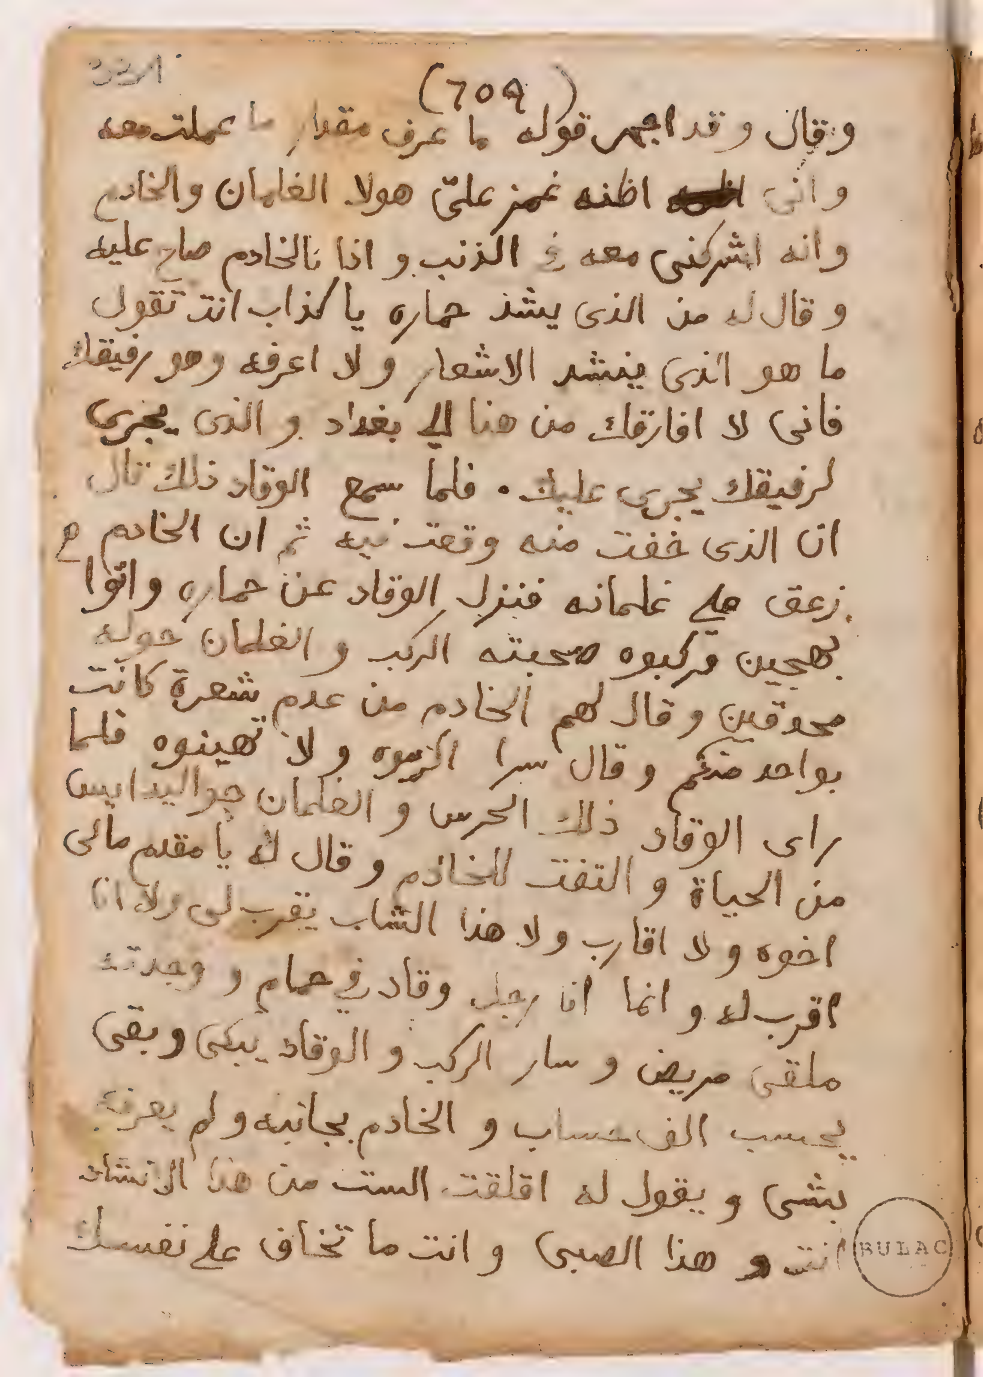 (٦٥٩)
وقال وقد اجهر قوله ما عرف مقدار ما عملت معه
وانى اظنه غمز علىّ هولا الغلمان والخادم
وانه اشركنى معه في الذنب واذا بالخادم صاح عليه
وقال له من الذى ينشد حماره يا كذاب انت تقول
ما هو الذى ينشد الاشعار ولا اعرفه وهو رفيقك
فانى لا افارقك من هنا الي بغداد والذى يجرى
لرفيقك يجرى عليك . فلما سمع الوقاد ذلك قال
ان الذى خفت منه وقعت فيه ثم ان الخادم
زعق علي غلمانه فنزل الوقاد عن حماره واتوا
بهجين فركبوه صحبته الركب والغلمان حوله
محدقين وقال لهم الخادم من عدم شعرة كانت
بواحد منكم وقال سرا اكرموه ولا تهينوه فلما
راى الوقاد ذلك الحرس والغلمان حواليه ايس
من الحياة والتفت للخادم وقال له يا مقدم مالى
اخوه ولا اقارب ولا هذا الشاب يقرب لى ولا انا
اقرب له وانما انا رجل وقاد في حمام ووجدته
ملقى مريض وسار الركب والوقاد يبكى وبقى
يحسب الف حساب والخادم بجانبه ولم يعرفه
بشى ويقول له اقلقت الست من هذا الانشاد
انت و هذا الصبى وانت ما تخاف علي نفسك
BULAC